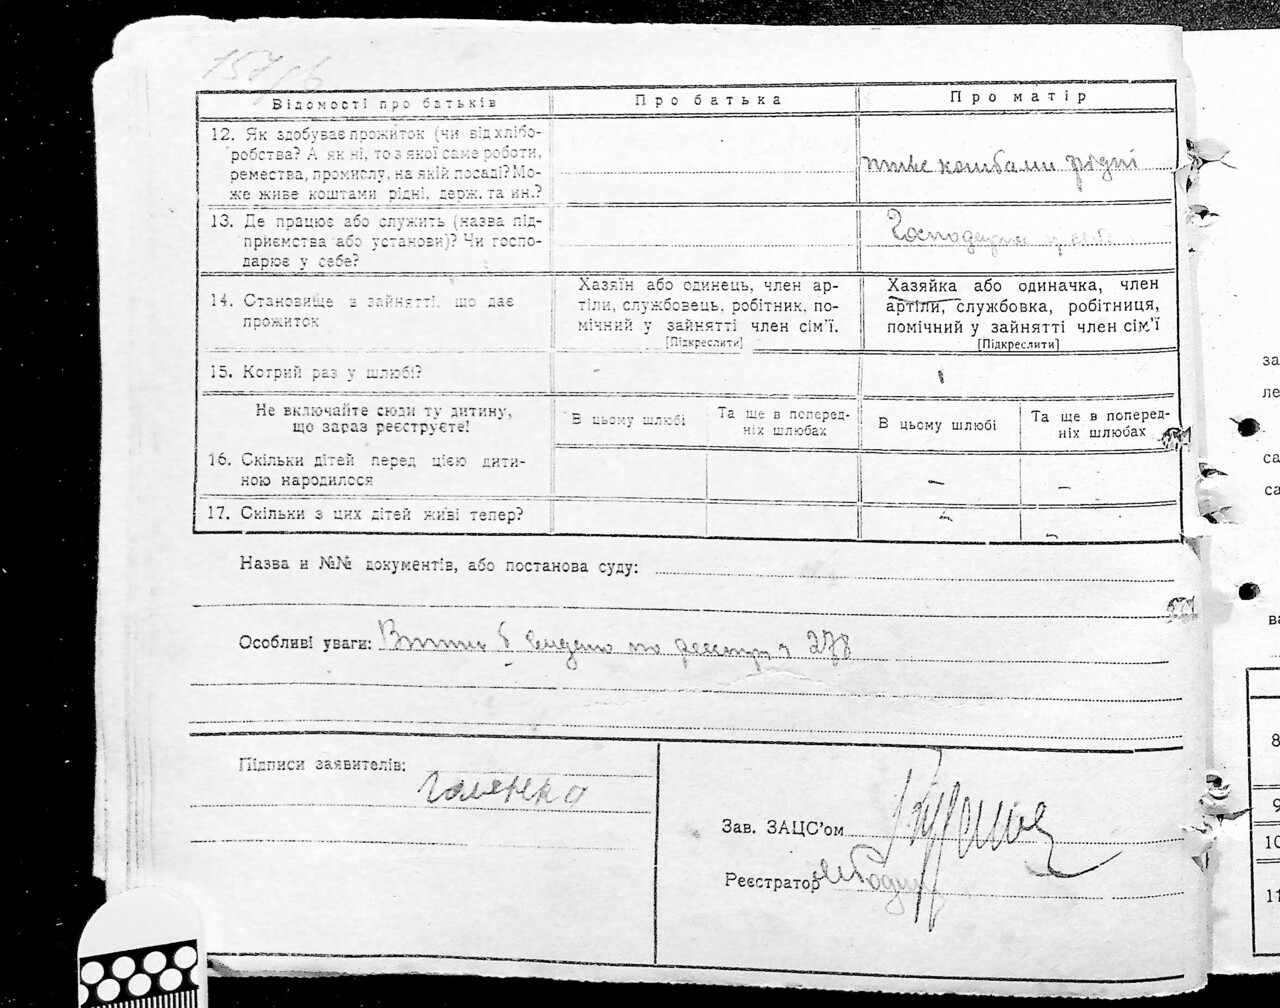 157 зв
Відомості про батьків
Про батька
Про матір
12. Як здобуває прожиток (чи від хлібо-
робства? А як ні, то з якої саме роботи,
ремества, промислу, на якій посаді? Мо-
же живе коштами рідні, держ. та ин.?
живе коштами рідні
13. Де працює або служить (назва під-
приємства або установи)? Чи госпо-
дарює у себе?
Господарює у себе
14. Становище в зайнятті, що дає
прожиток
Хазяїн або одинець, член ар-
тіли, службовець, робітник, по-
мічний у зайнятті член сім'ї.
[Підкреслити]
Хазяйка або одиначка, член
артіли, службовка, робітниця,
помічний у зайнятті член сім'ї
[Підкреслити]
15. Котрий раз у шлюбі?
-
1
Не включайте сюди ту дитину,
що зараз реєструєте!
В цьому шлюбі
Та ще в поперед-
ніх шлюбах
В цьому шлюбі
Та ще в поперед-
ніх шлюбах
16. Скільки дітей перед цією дити-
ною народилося
-
-
17. Скільки з цих дітей живі тепер?
-
-
Назва и №№ документів, або постанова суду:
Особливі уваги: по реєстру 278
Підписи заявителів:
Галенко
Зав. ЗАЦС'ом
Реєстратор
за
ле
са
са
ва
8
9
10
11